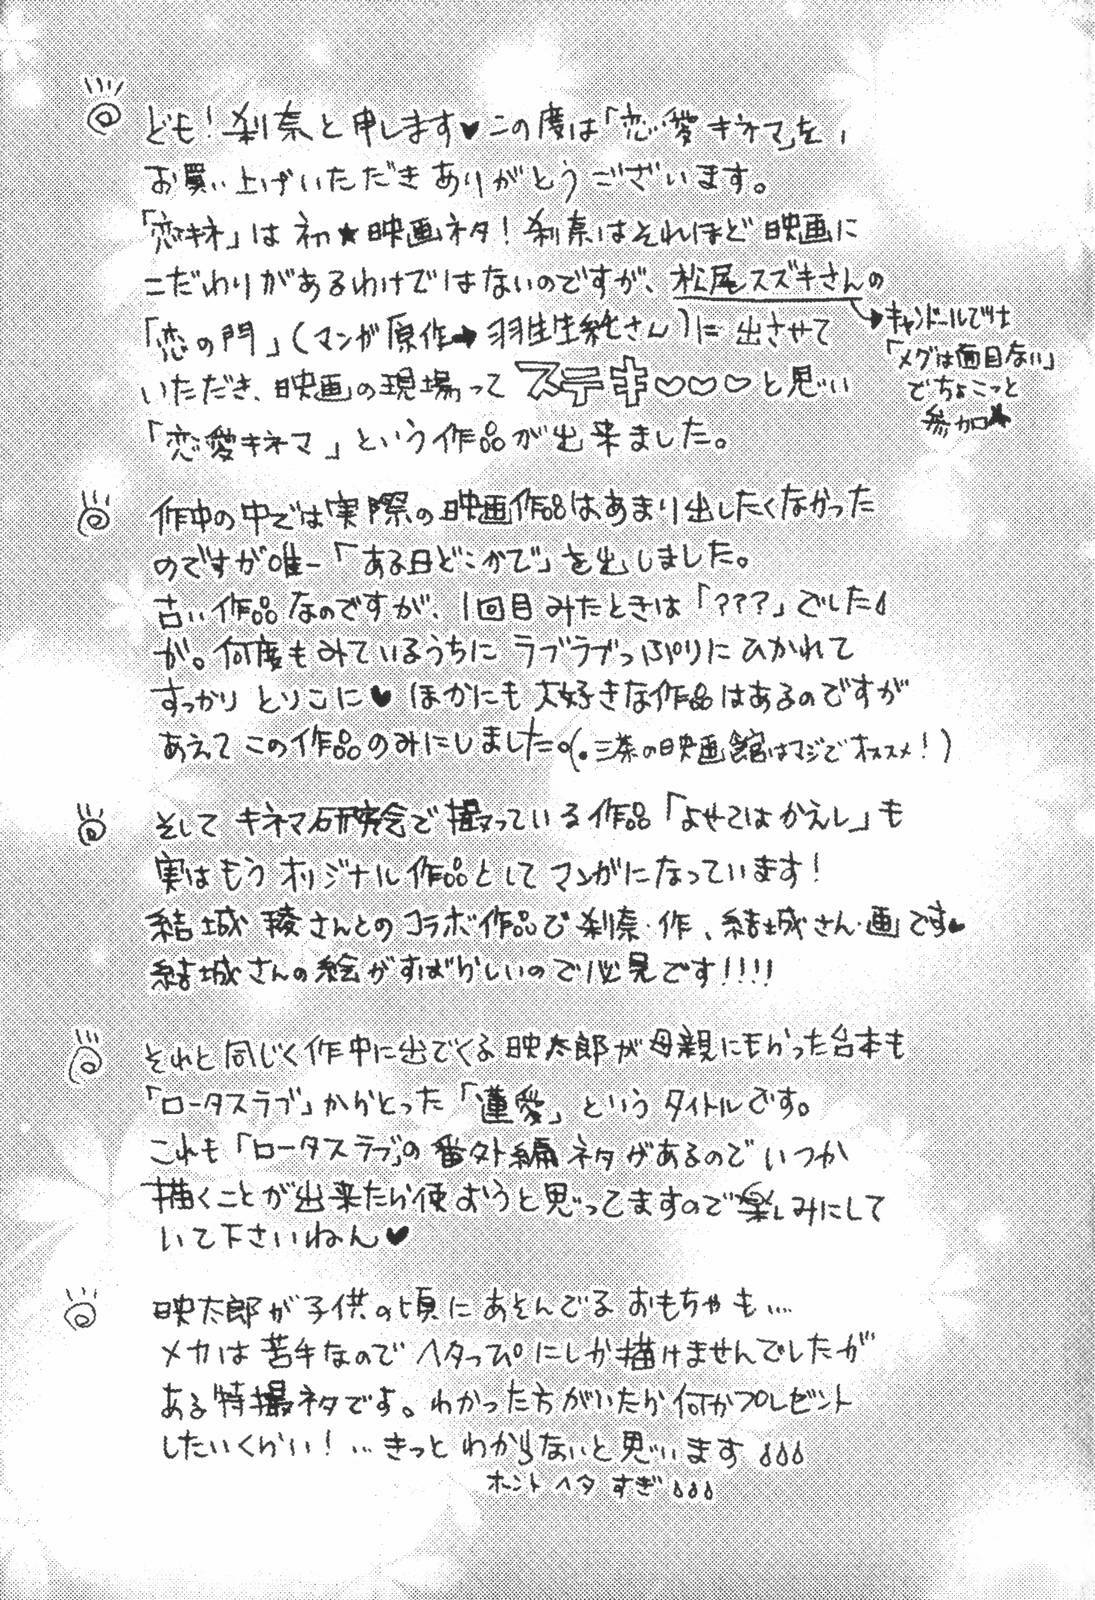 ども!刹奈と申します♥この度は「恋愛キネマ」を、
お買い上げいただきありがとうございます。
「恋キネ」は初★映画ネタ!刹奈はそれほど映画に
こだわりがあるわけではないのですが、松尾スズキさんの
→キャンドールでは
「メグは面目ない」
でちょこっと
参加★
「恋の門」(マンガ原作→羽生生純さん)に出させて
いただき、映画の現場ってステキ♡♡♡と思い
「恋愛キネマ」という作品が出来ました。
作中の中では実際の映画作品は、あまり出したくなかった
のですが唯一「ある日どこかで」を出しました。
古い作品なのですが、1回目みたときは「???」でした
が。何度もみているうちにラブラブっぷりにひかれて
すっかりとりこに♥ほかにも大好きな作品はあるのですが
あえてこの作品のみにしました。(三茶の映画館はマジでオススメ!)
そしてキネマ研究会で撮っている作品「よせてはかえし」も
実はもうオリジナル作品としてマンガになっています!
結城稜さんとのコラボ作品で刹奈・作、結城さん・画です♥
結城さんの絵がすばらしいので必見です!!!!
それと同じく作中に出てくる映太郎が母親にもらった台本も
「ロータスラブ」からとった「蓮愛」というタイトルです。
これも「ロータスラブ」の番外編ネタがあるのでいつか
描くことが出来たら使おうと思ってますので楽しみにして
いて下さいねん♥
映太郎が子供の頃にあそんでるおもちゃも…
メカは苦手なのでヘタっぴにしか描けませんでしたが
ある特撮ネタです。わかった方がいたら何かプレゼント
したいくらい!…きっとわからないと思います
ホントヘタすぎ